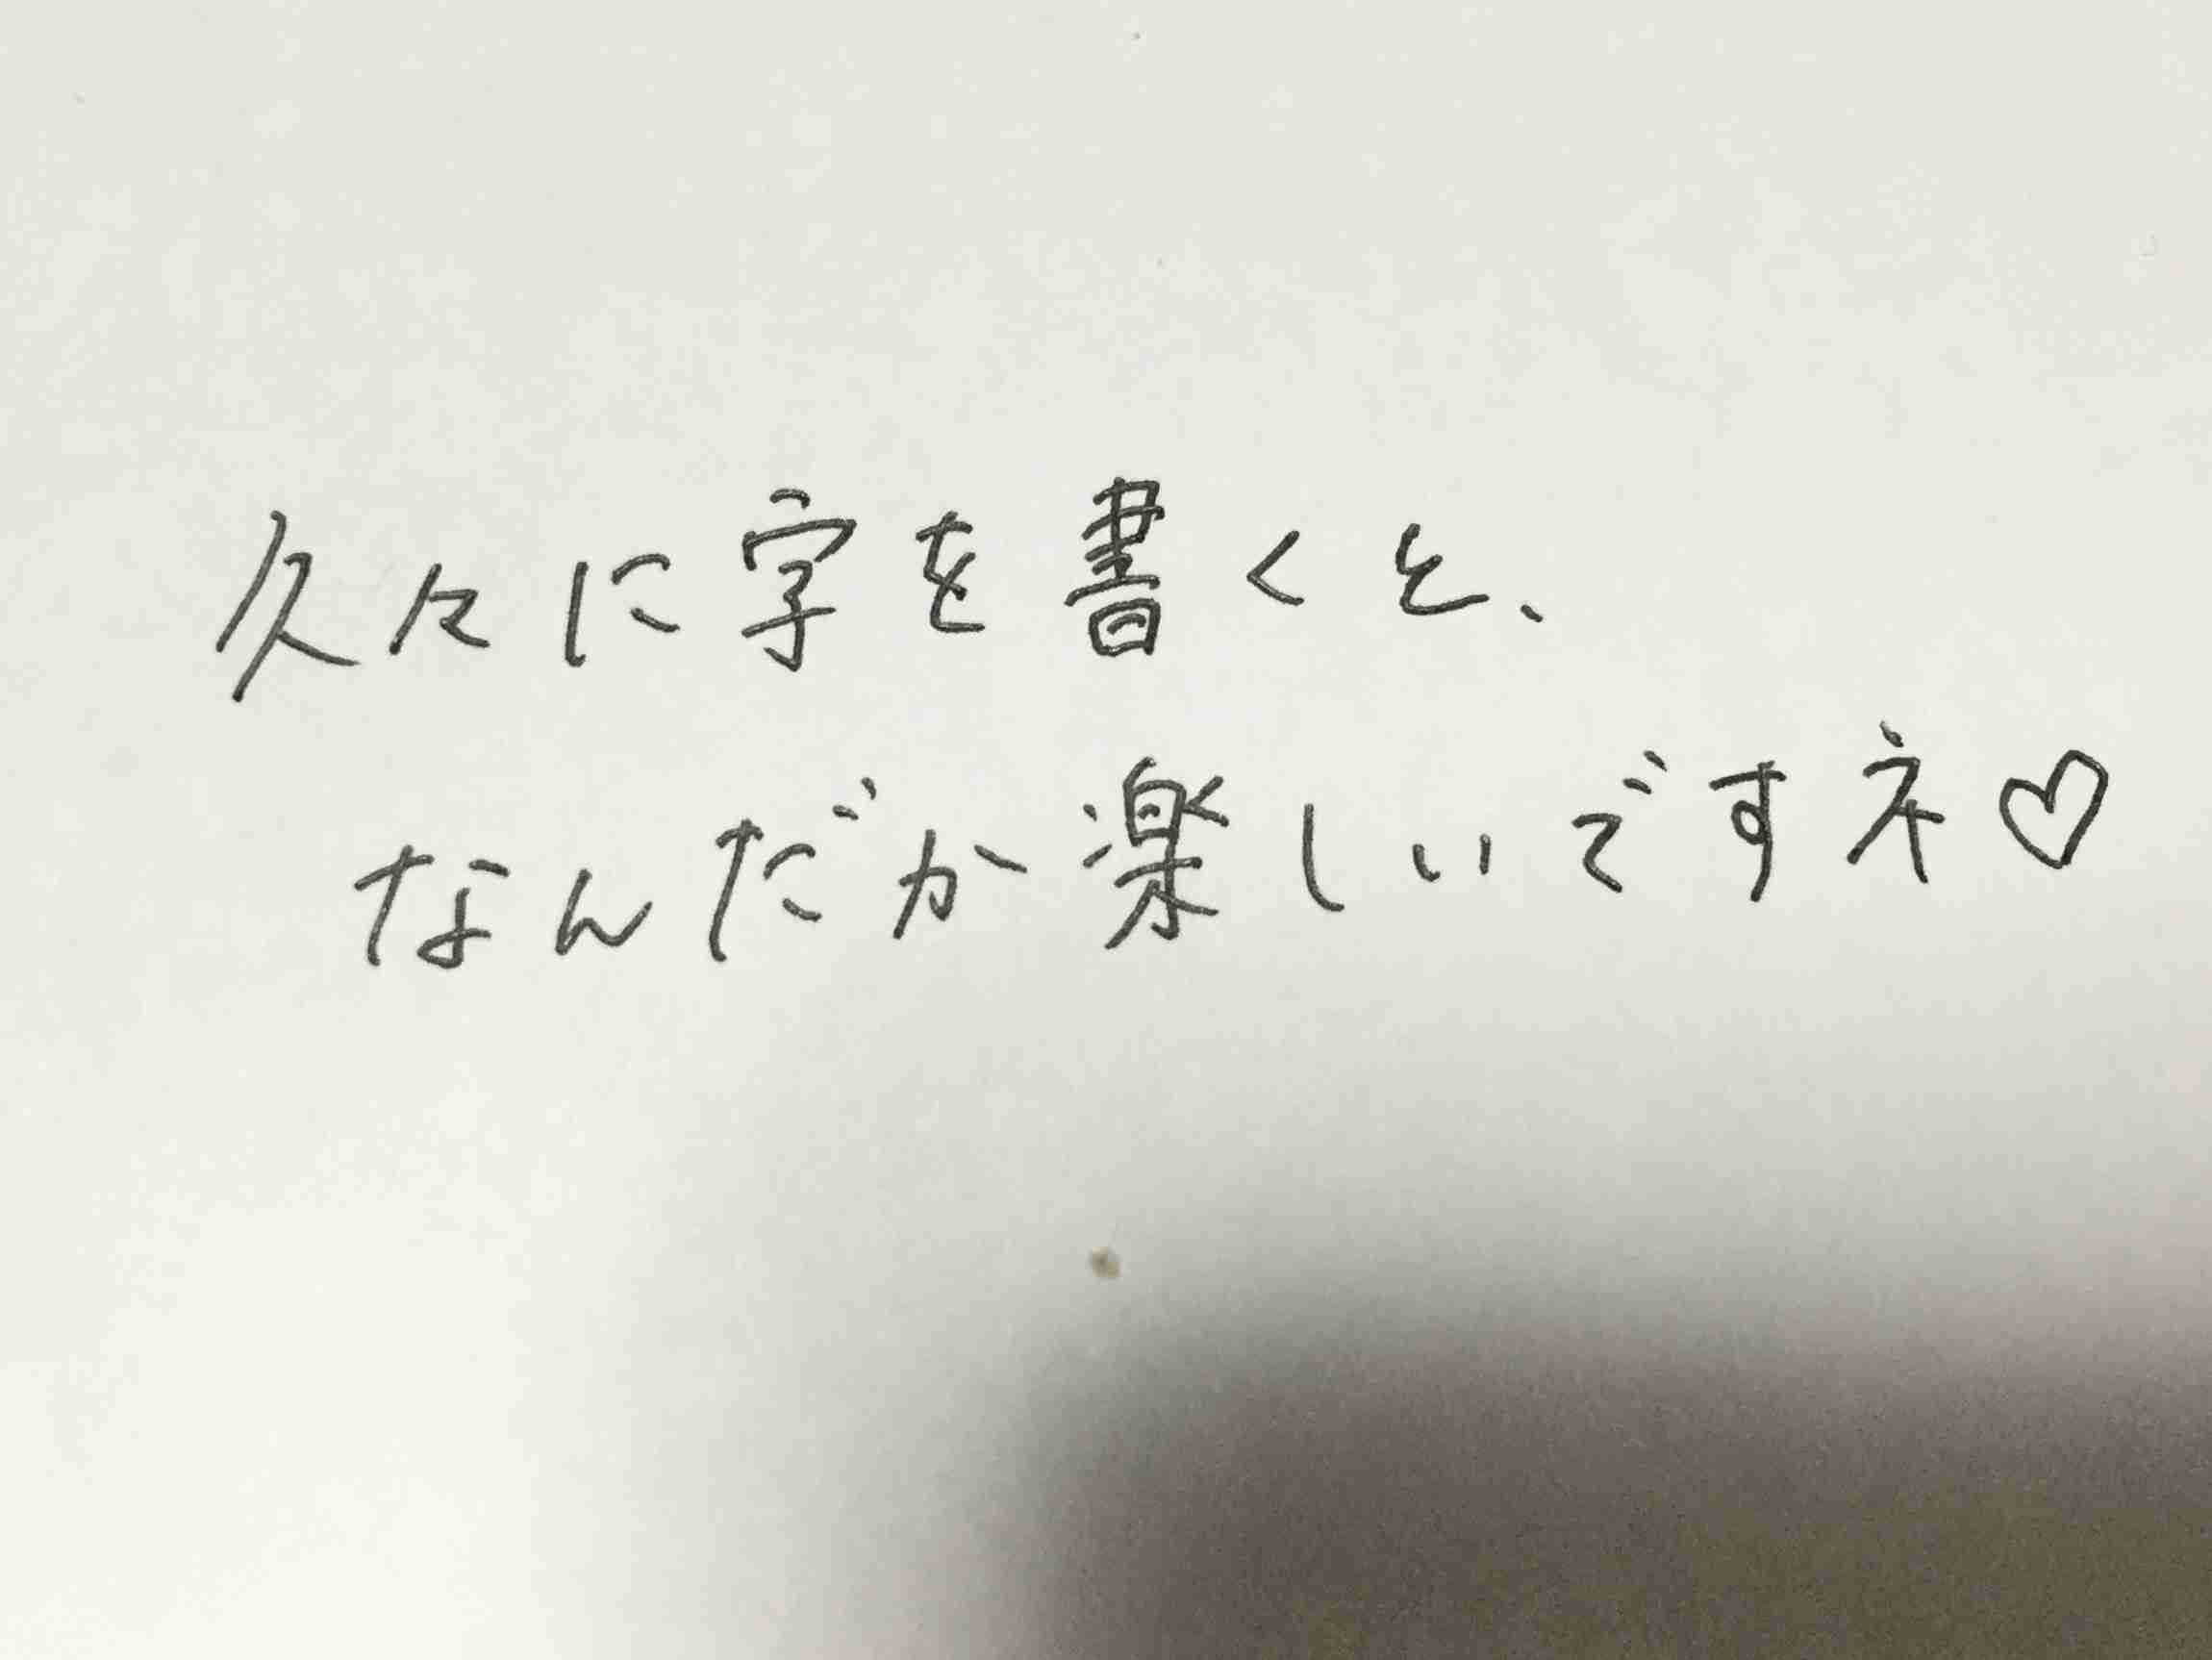 久々に字を書くと、
なんだか楽しいですネ♡